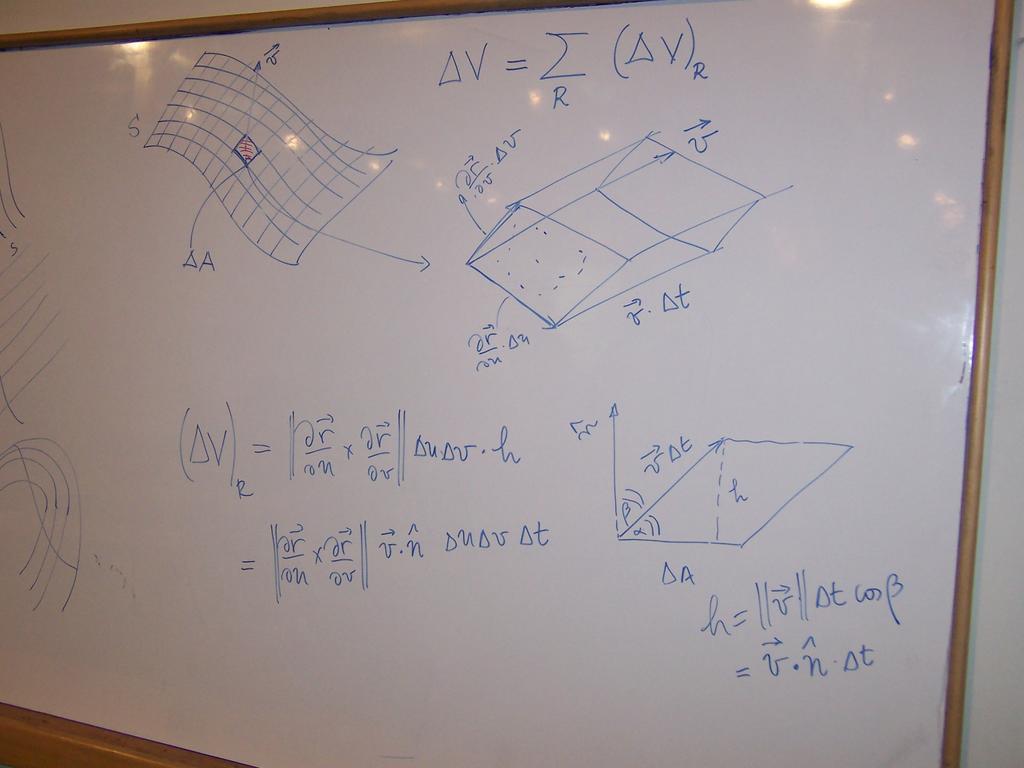 ΔV = Σ_R (ΔV)_R
S
v⃗
ΔA
∂r⃗/∂v · Δv
v⃗
∂r⃗/∂u · Δu
v⃗ · Δt
S
(ΔV)_R = ‖∂r⃗/∂u × ∂r⃗/∂v‖ Δu Δv · h
= ‖∂r⃗/∂u × ∂r⃗/∂v‖ v⃗ · n̂ Δu Δv Δt
v⃗ Δt
h
β
α
ΔA
h = ‖v⃗‖ Δt cos β
= v⃗ · n̂ · Δt